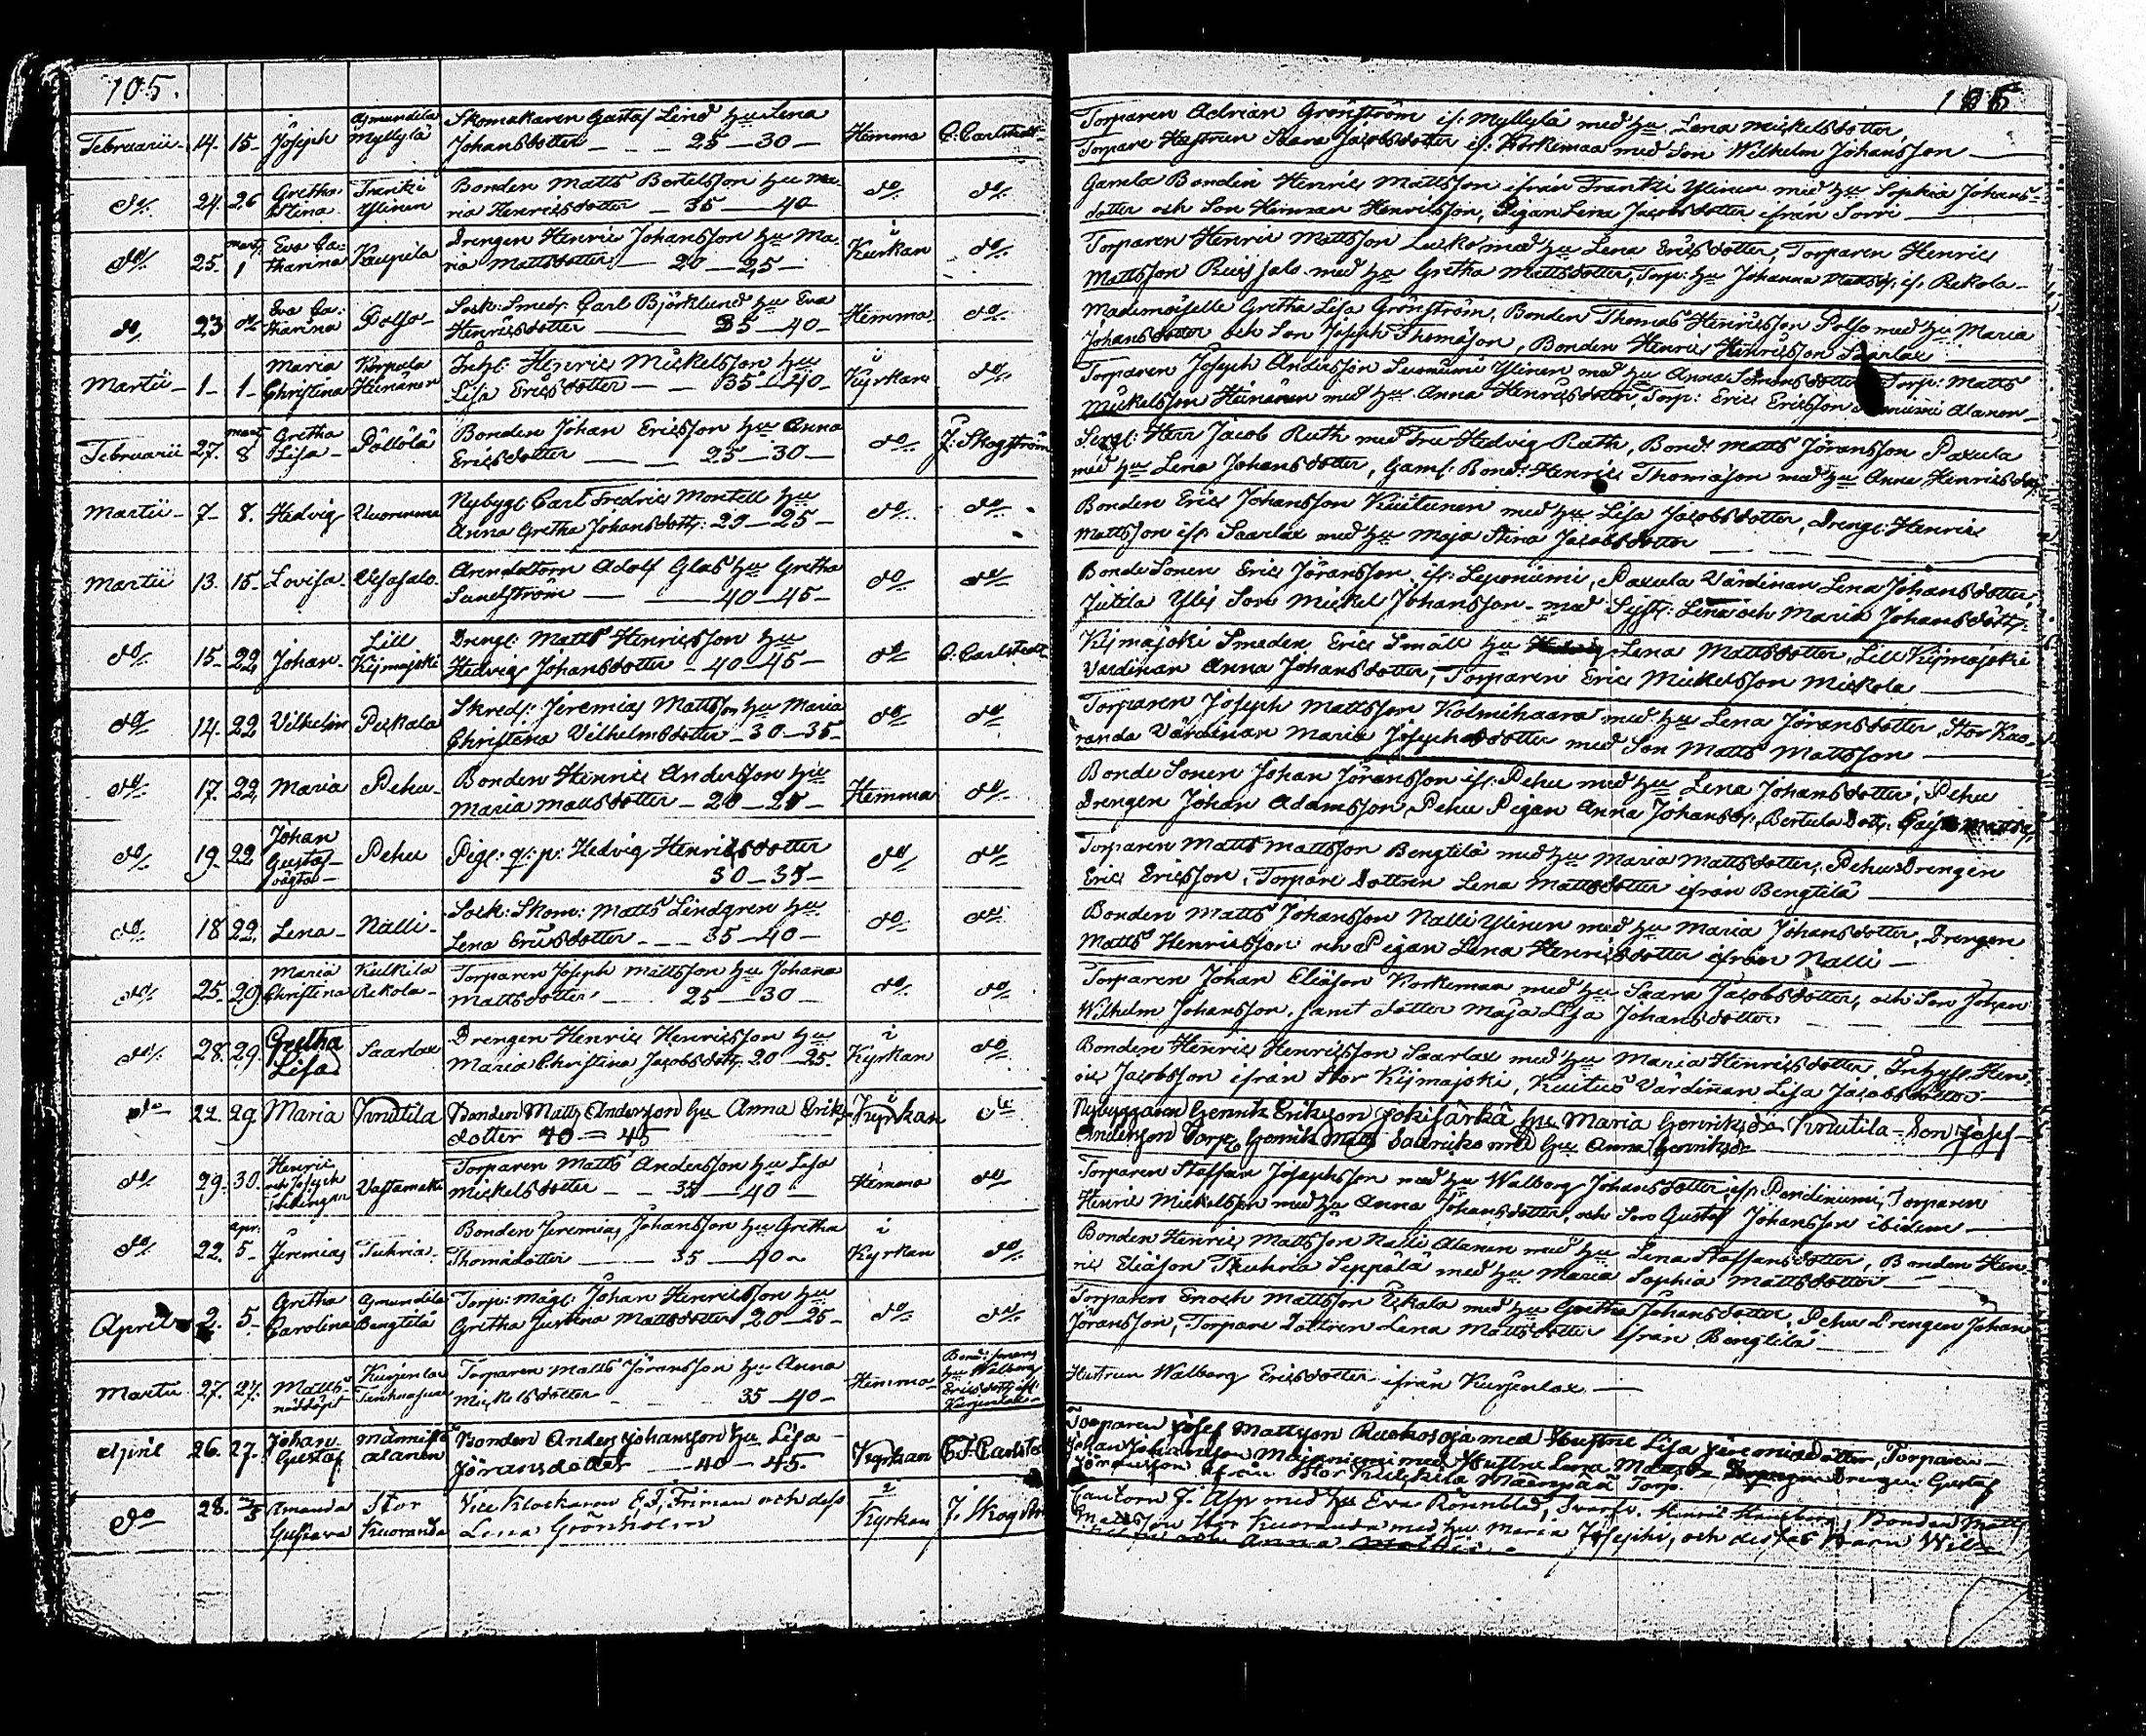 105.
Februarii 14. 15 Joseph Asmundila Myllylä Skomakaren Gustaf Lind hu Lena
Johansdotter 25 — 30 Hemma C. Carlstedt
do 24. 26 Gretha Stina Frantzi Ylinen Bonden Matts Bertelsson hu Ma-
ria Henricsdotter 35 — 40 do do
do 25. mart: 1 Eva Ca-tharina Kaupila Drengen Henric Johansson hu Ma-
ria Mattsdotter 20 — 25 i Kyrkan do
do 23 do Eva Ca-tharina Polso Sock: Smed: Carl Björklund hu Eva
Henricsdotter 35 — 40 Hemma do
Martii 1 1 Maria Christina Korpela Heinänen Inhyl: Henric Mickelsson hu
Lisa Ericsdotter 35 — 40 i Kyrkan do
Februarii 27. mart 8 Gretha Lisa Pöllölä Bonden Johan Ericsson hu Anna
Ericsdotter 25 — 30 do J: Skogström
Martii 7 8. Hedvig Vuorenmaa Nybygg: Carl Fredric Montell hu
Anna Gretha Johansdott: 20 — 25 do do
Martii 13. 15 Lovisa Arendatorn Adolf Glas hu Gretha
Sundström 40 — 45 do do
do 15 22 Johan Lill Kijmajoki Dreng: Matts Henricsson hu
Hedvig Johansdotter 40 — 45 do C. Carlstedt
do 14. 22 Vilhelm Pickala Skred: Jeremias Mattsson hu Maria
Christina Vilhelmsdotter 30 — 35 do do
do 17. 22 Maria Pehu Bonden Henric Andersson hu
Maria Mattsdotter 20 — 25 Hemma do
do 19. 22 Johan Gustaf oägta Pehu Pig: q: p: Hedvig Henricsdotter
30 — 35 do do
do 18 22. Lena Nalli Sock: Skom: Matts Lindgren hu
Lena Ericsdotter 35 — 40 do do
do 25 29 Maria Christina Kulkila Rekola Torparen Joseph Mattsson hu Johana
Mattsdotter 25 — 30 do do
do 28. 29. Gretha Lisa Saarlax Drengen Henric Henricsson hu
Maria Christina Jacobsdott: 20 — 25. i Kyrkan do
do 22. 29. Maria Knutila Bonden Matts Andersson hu Anna Eriks-
dotter 40 = 45 i Kyrkan do
do 29. 30. Henric och Joseph Tvilingar Vastamäki Torparen Matts Andersson hu Lisa
Mickelsdotter 35 — 40 Hemma do
do 22. apr: 5 Jeremias Tuhria Bonden Jeremias Johansson hu Gretha
Thomadotter 35 — 40 i Kyrkan do
April 2. 5 Gretha Carolina Asmundila Bengtilä Torp: måg: Johan Henricsson hu
Gretha Justina Mattsdotter 20 — 25 do do
Martii 27. 27. Matts nöddöpt Kurjenlax Torparen Matts Jöransson hu Anna
Mickelsdotter 35 — 40 Hemma Bond: hu Walborg Ericsdott: ifr: Kurjenlax
April 26. 27. Johan Gustaf Männistö Alanen Bonden Anders Johansson hu Lisa
Jöransdotter 40 — 45. Kyrkan C. F. Carlstedt
do 28. Amanda Gustava Stor Kuoranda Vice Klockaren E. J. Friman och dess
Lena Grönholm i Kyrkan J. Skogstr
Torparen Adrian Grönström if: Myllylä med hu Lena Mickelsdotter,
Torpare Hustrun Saara Jacobsdotter if: Korkemaa med Son Wilhelm Johansson
Gamla Bonden Henric Mattsson ifrån Frantzi Ylinen med hu Sophia Johans-
dotter och Son Herman Henricsson, Pigan Lena Jacobsdotter ifrån Sorri
Torparen Henric Mattsson med hu Lena Ericsdotter, Torparen Henric
Mattsson Ruissalo med hu Gretha Mattsdotter, Torp: hu Johanna Mattsd: if: Rekola
Mademoiselle Gretha Lisa Grönström, Bonden Thomas Henricsson Polso med hu Maria
Johansdotter och Son Joseph Thomasson, Bonden Henric Henricsson Saarlax
Torparen Joseph Andersson Ylinen med hu Anna Torp: Matts
Mickelsson Heinänen med hu Anna Henricsdotter, Torp: Eric Ericsson Alanen
Serg: Herr Jacob Ruth med Fru Hedvig Ruth, Bond: Matts Jöransson Paxula
med hu Lena Johansdotter, Gaml: Bond: Henric Thomasson med hu Anna Henricsdott:
Bonden Eric Johansson Kuitunen med hu Lisa Jacobsdotter, Dreng: Henric
Mattsson ifr Saarlax med hu Maja Stina Jacobsdotter
Bonde Sonen Eric Jöransson if: Leponiemi, Paxula Värdinan Lena Johansdotter,
Jutila Ylis Son Mickel Johansson med Syst: Lena och Maria Johansdött:
Kijmajoki Smeden Eric Småll hu Lena Mattsdotter, Lill Kijmajoki
Värdinan Anna Johansdotter, Torparen Eric Mickelsson Mickola
Torparen Joseph Mattsson Kolmihaara med hu Lena Jöransdotter, Stor Kuo-
randa Värdinan Maria Josephsdotter med Son Matts Mattsson
Bonde Sonen Johan Jöransson if: Pehu med hu Lena Johansdotter, Pehu
Drengen Johan Adamsson, Pehu Pigan Anna Johansd:, Bertula Dott: Caisa Mattsd:
Torparen Matts Mattsson Bengtilä med hu Maria Mattsdotter, Pehu Drengen
Eric Ericsson, Torpare Dottren Lena Mattsdotter ifrån Bengtilä
Bonden Matts Johansson Nalli Ylinen med hu Maria Johansdotter, Drengen
Matts Henricsson och Pigan Lena Henricsdotter ifrån Nalli
Torparen Johan Eliäson Korkemaa med hu Saara Jacobsdotter, och Son Johan
Wilhelm Johansson, samt dotter Maja Lisa Johansdotter
Bonden Henric Henricsson Saarlax med hu Maria Henricsdotter, Inhys: Hen-
ric Jacobsson ifrån Stor Kijmajoki, Kuitus Värdinan Lisa Jacobsdotter
Nybyggaren Henrik Eriksson Jokisärkä hu Maria Henriksdr, Knutila Son Josef
Andersson Torp: Henrik Matts med hu Anna Henriksdr
Torparen Staffan Josephsson med hu Walborg Johansdotter, Torparen
Henric Mickelsson med hu Anna Johansdotter, och Son Gustaf Johansson ibidem
Bonden Henric Mattsson Nalli Alanen med hu Lena Staffansdotter, Bonden Hen-
ric Eliäson Tuhria Seppälä med hu Maria Sophia Mattsdotter
Torparen Enoch Mattsson med hu Gretha Johansdotter, Pehu Drengen Johan
Jöransson, Torpare Dottren Lena Mattsdotter ifrån Bengtilä
Hustrun Walborg Ericsdotter ifrån Kurjenlax
Torparen Josef Mattsson Raukosoja med Hustru Lisa Jeremiasdotter, Torparen
Johan Johansson med Hustru Lena Drengen Gustaf
Jöransson Stor Torp.
Cantorn J. Asp med hu Eva Rönnblad, Bonden Matts
Mattsson Stor Kuoranda med hu Maria Josephs, och desses Barn Wil-
Anna